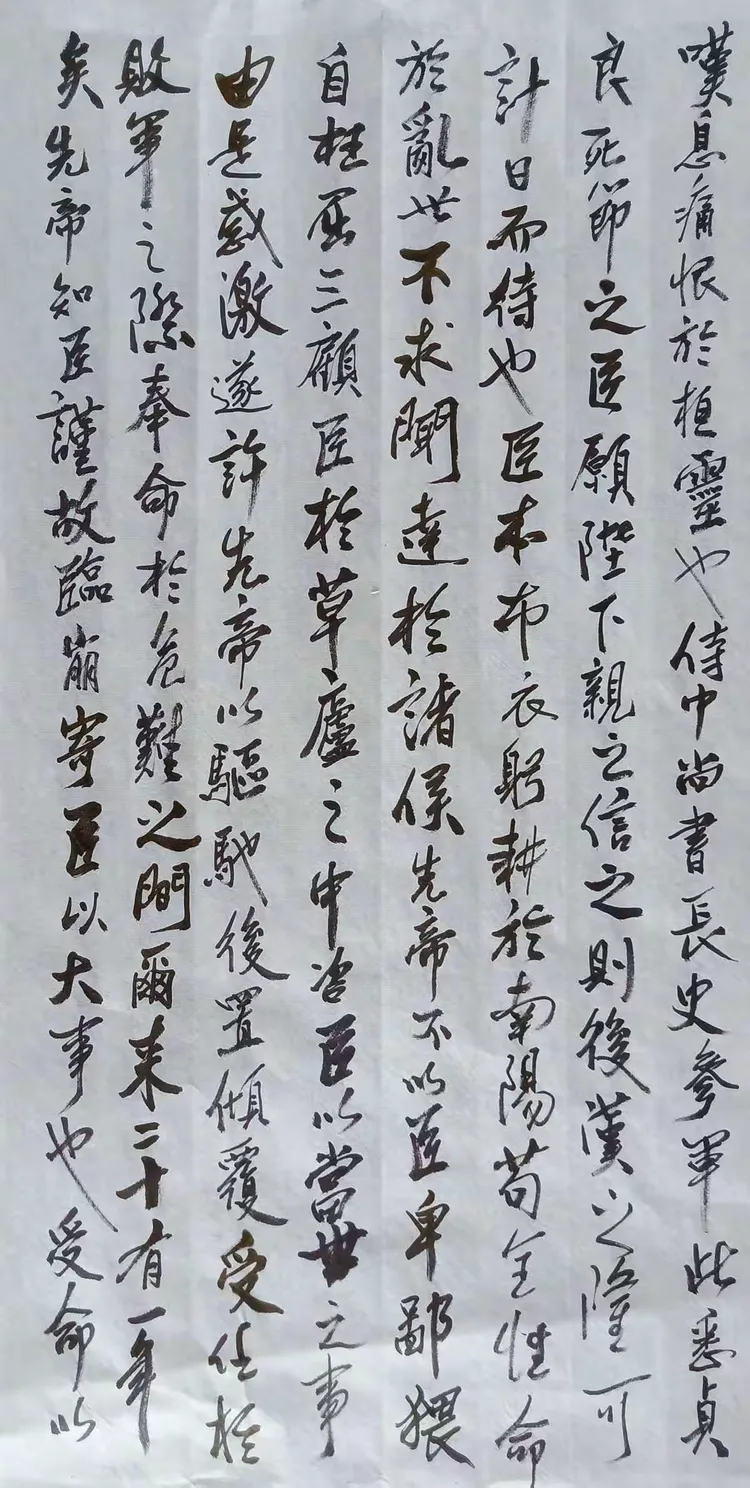 嘆息痛恨於桓靈也侍中尚書長史參軍此悉貞
良死節之臣願陛下親之信之則後漢之隆可
計日而待也臣本布衣躬耕於南陽苟全性命
於亂世不求聞達於諸侯先帝不以臣卑鄙猥
自枉屈三顧臣於草廬之中咨臣以當世之事
由是感激遂許先帝以驅馳後置傾覆受任於
敗軍之際奉命於危難之間爾来二十有一年
矣先帝知臣謹故臨崩寄臣以大事也受命以